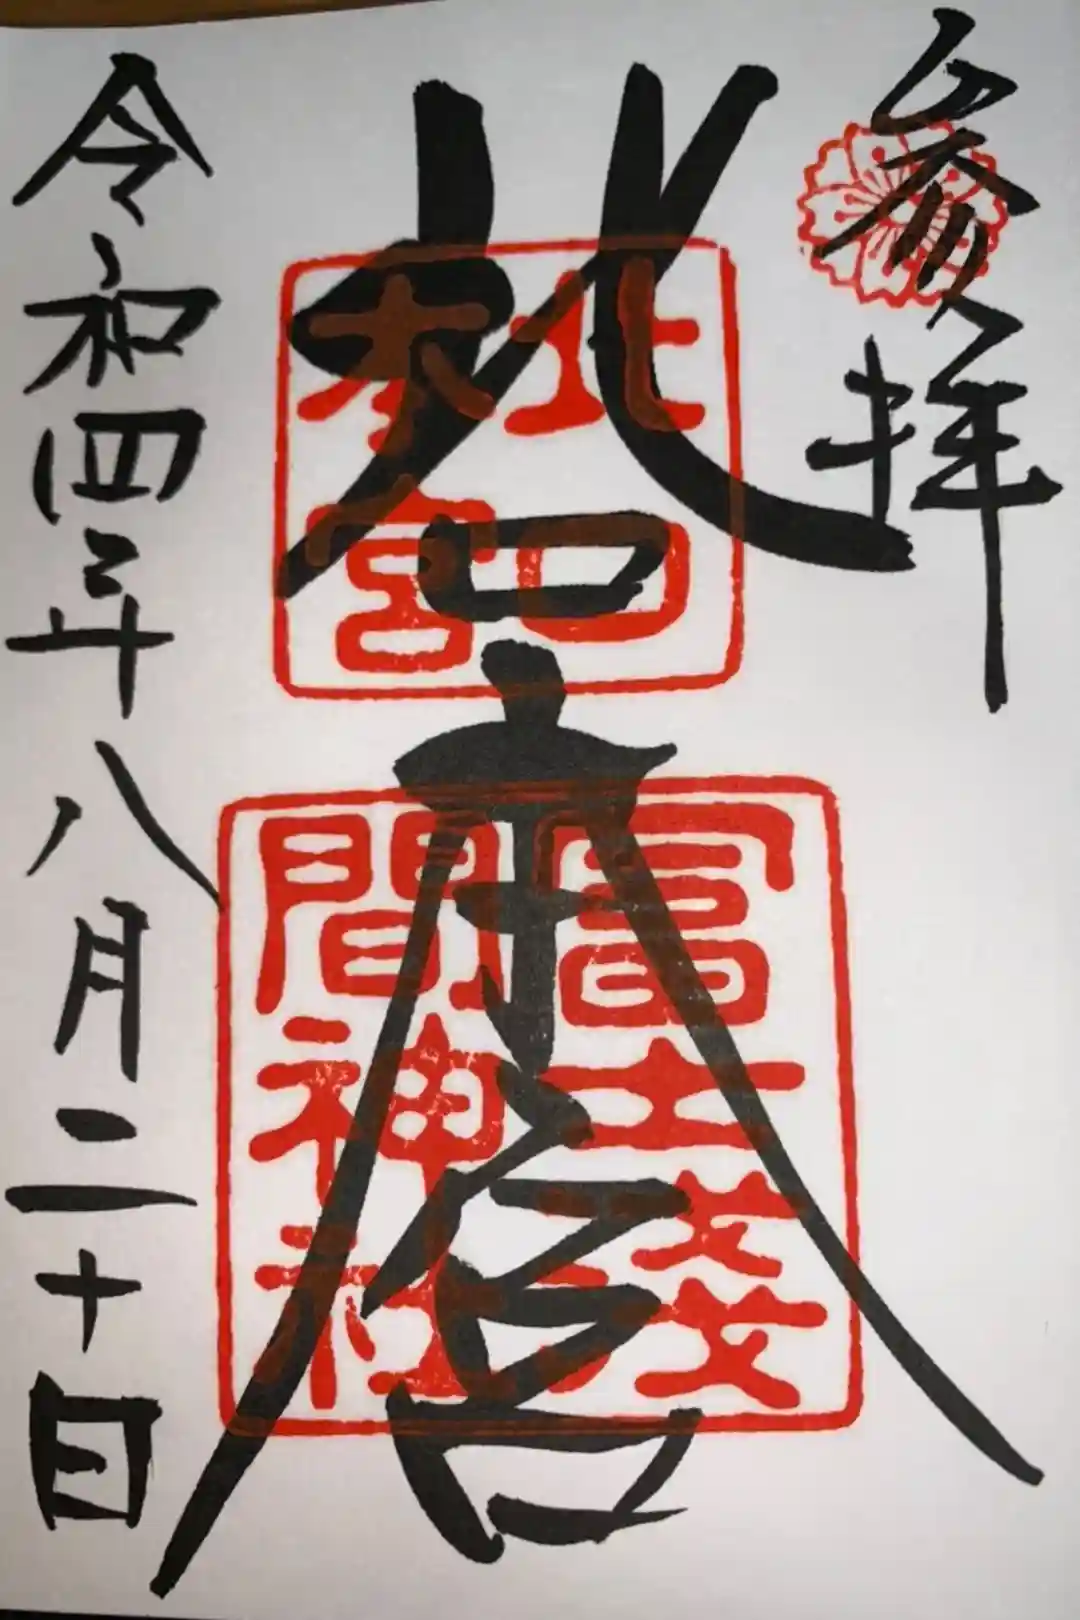 参拝
北口本宮
北口
本宮
冨士淺
間神社
令和四年八月二十日